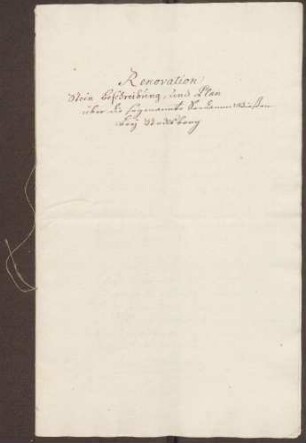 Renovation
Stein Beschreibung, und Plan
über die sogenannte Wiesen
bey